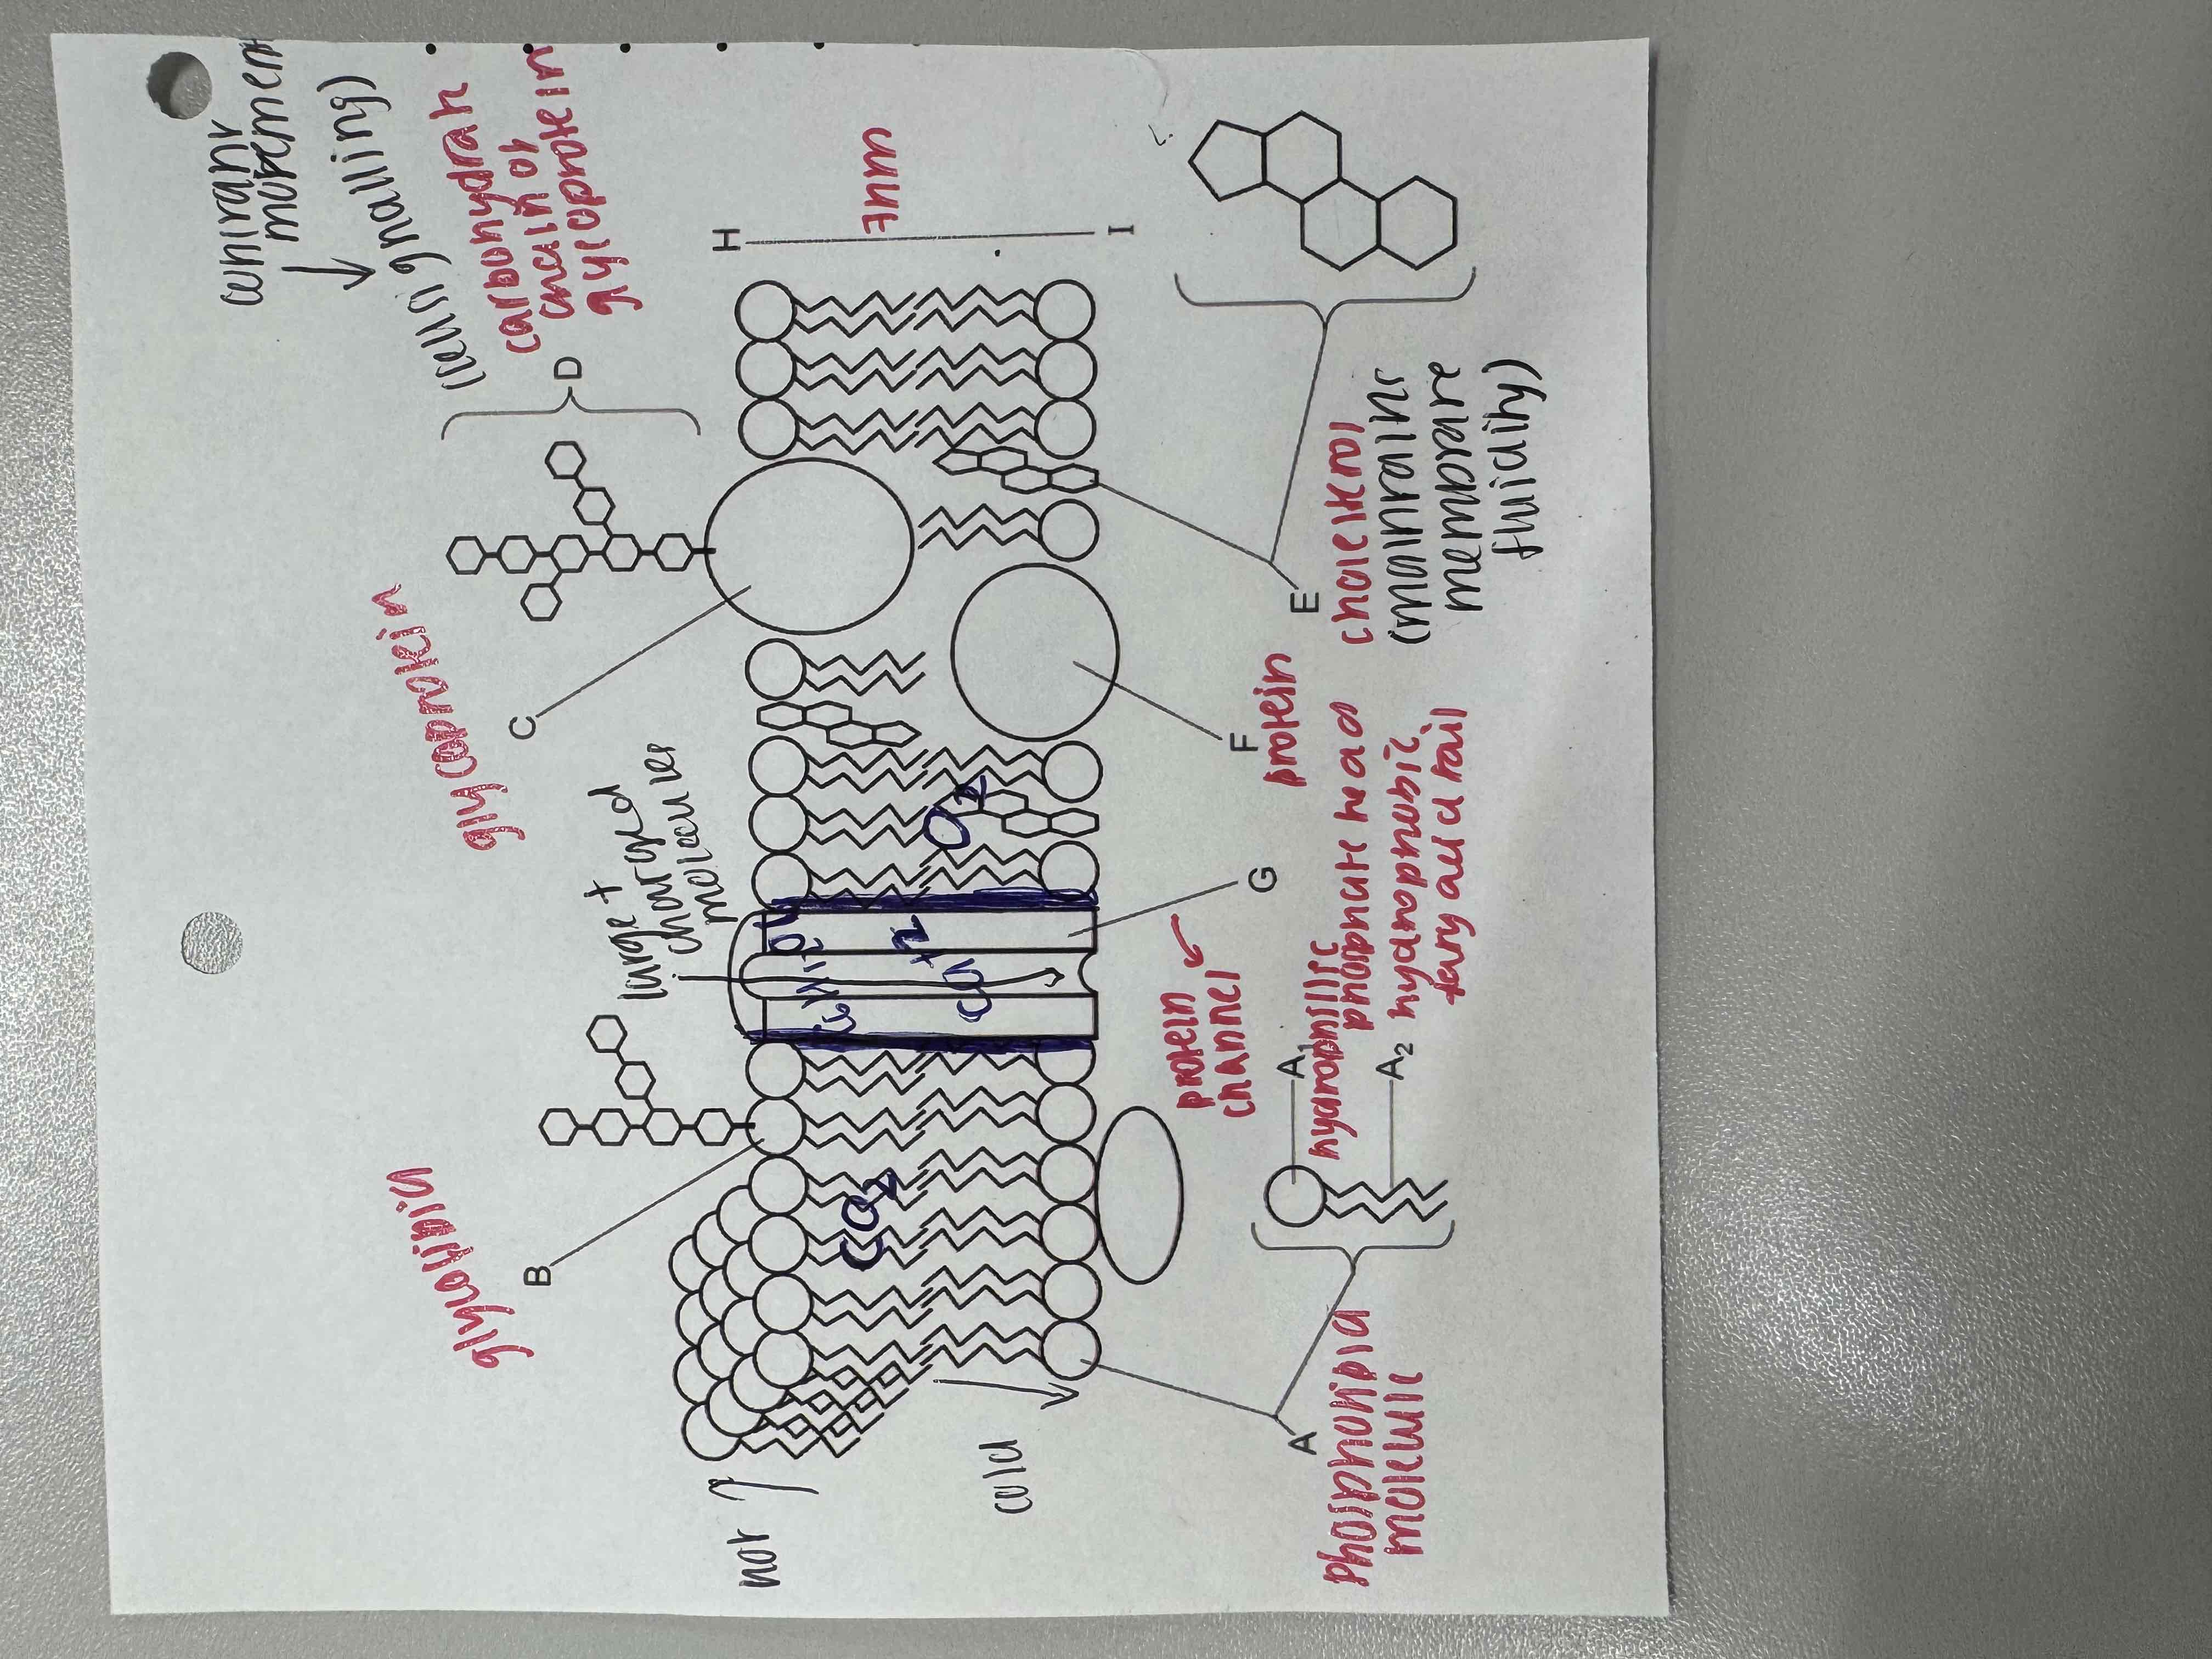 constant
movement
(cell signalling)
carbohydrate
chain of
glycoprotein
D
glycoprotein
C
large +
charged
molecules
glycolipid
B
H
7nm
I
hot
cold
CO2
O2
Ca+2
E
cholesterol
(maintains
membrane
fluidity)
F
protein
G
protein
channel
A
phospholipid
molecule
A1
hydrophillic
phosphate head
A2
hydrophobic
fatty acid tail